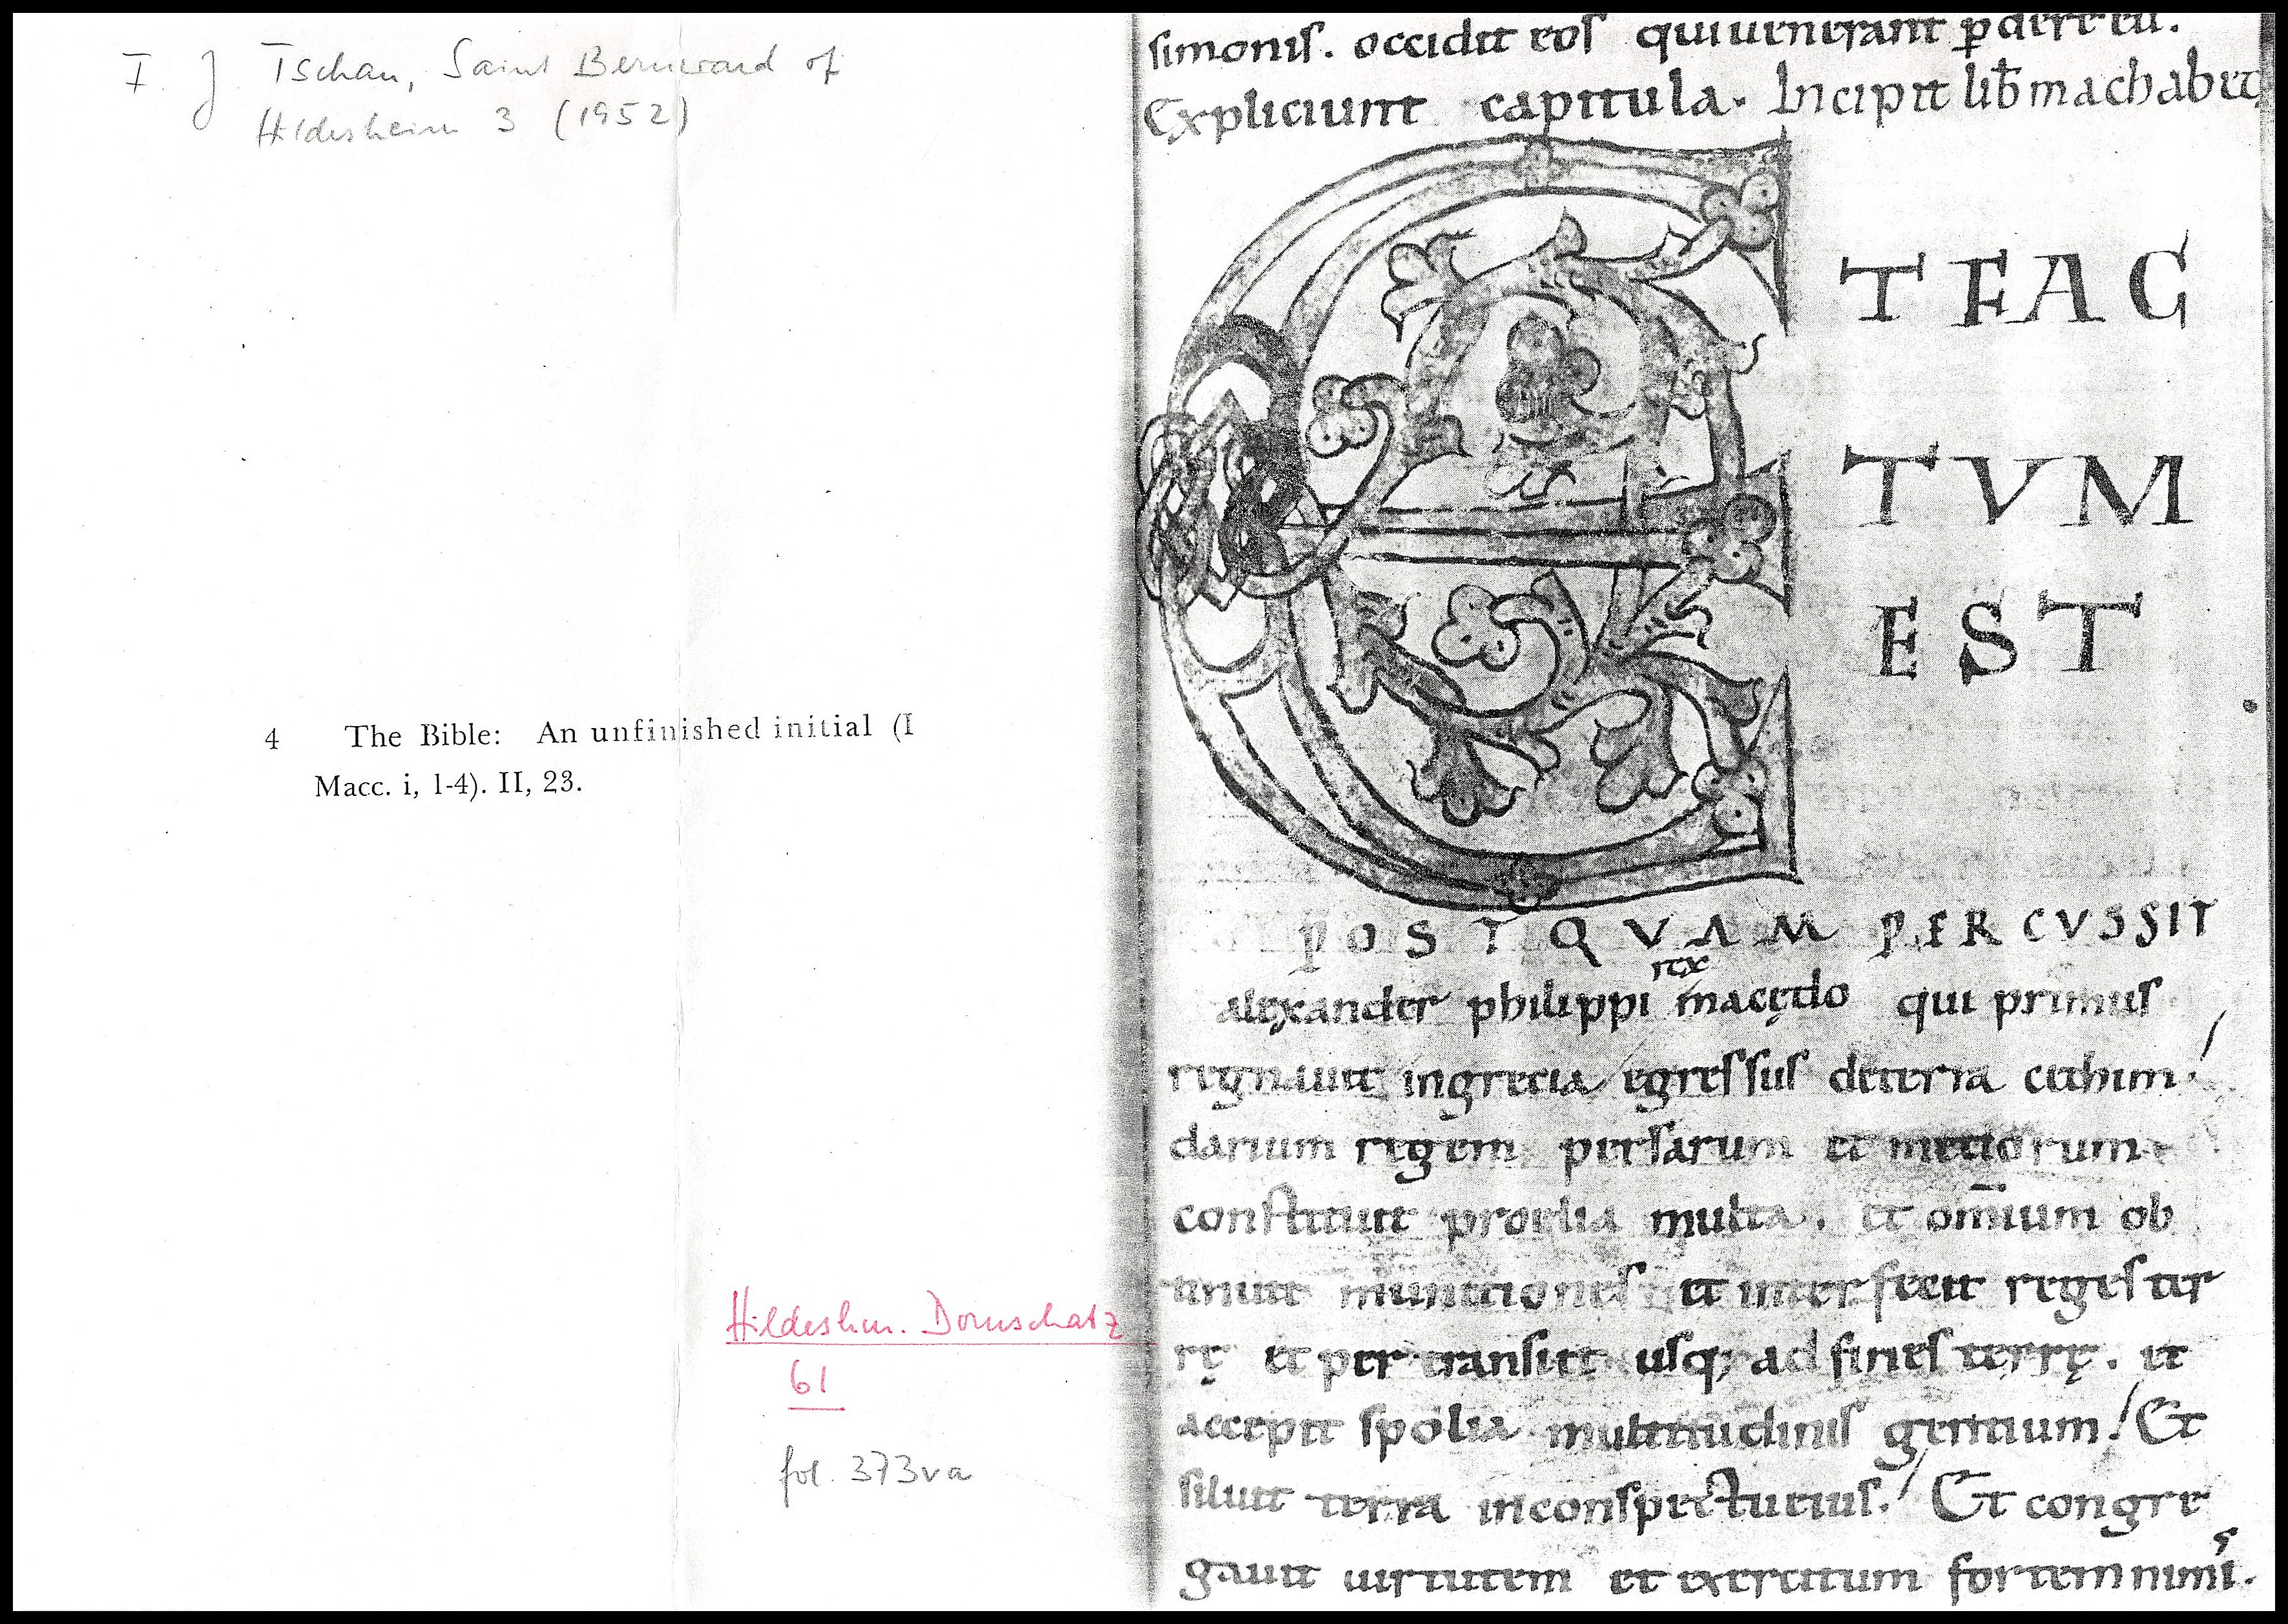 F J Tschan, Saint Bernward of
Hildesheim 3 (1952)
4 The Bible: An unfinished initial (I
Macc. i, 1-4). II, 23.
Hildesheim. Domschatz
61
fol. 373va
simonis. occidit eos qui uenerant ꝑdere eū.
Expliciunt capitula. Incipit lib̄ machabeoꝝ
E
TFAC
TVM
EST
POSTQVAM PERCVSSIT
rex
alexander philippi macędo qui primus
regnauit ingrecia egressus deterra cethim.
darium regem persarum et medorum
constituit proelia multa. et om̄ium ob
tinuit munitiones et interfecit reges ter
rę et per transiit usq; ad fines terrę. et
accepit spolia multitudinis gentium. Et
siluit terra inconspectu eius. Et congre
gauit uirtutem et exercitum fortem nimis.